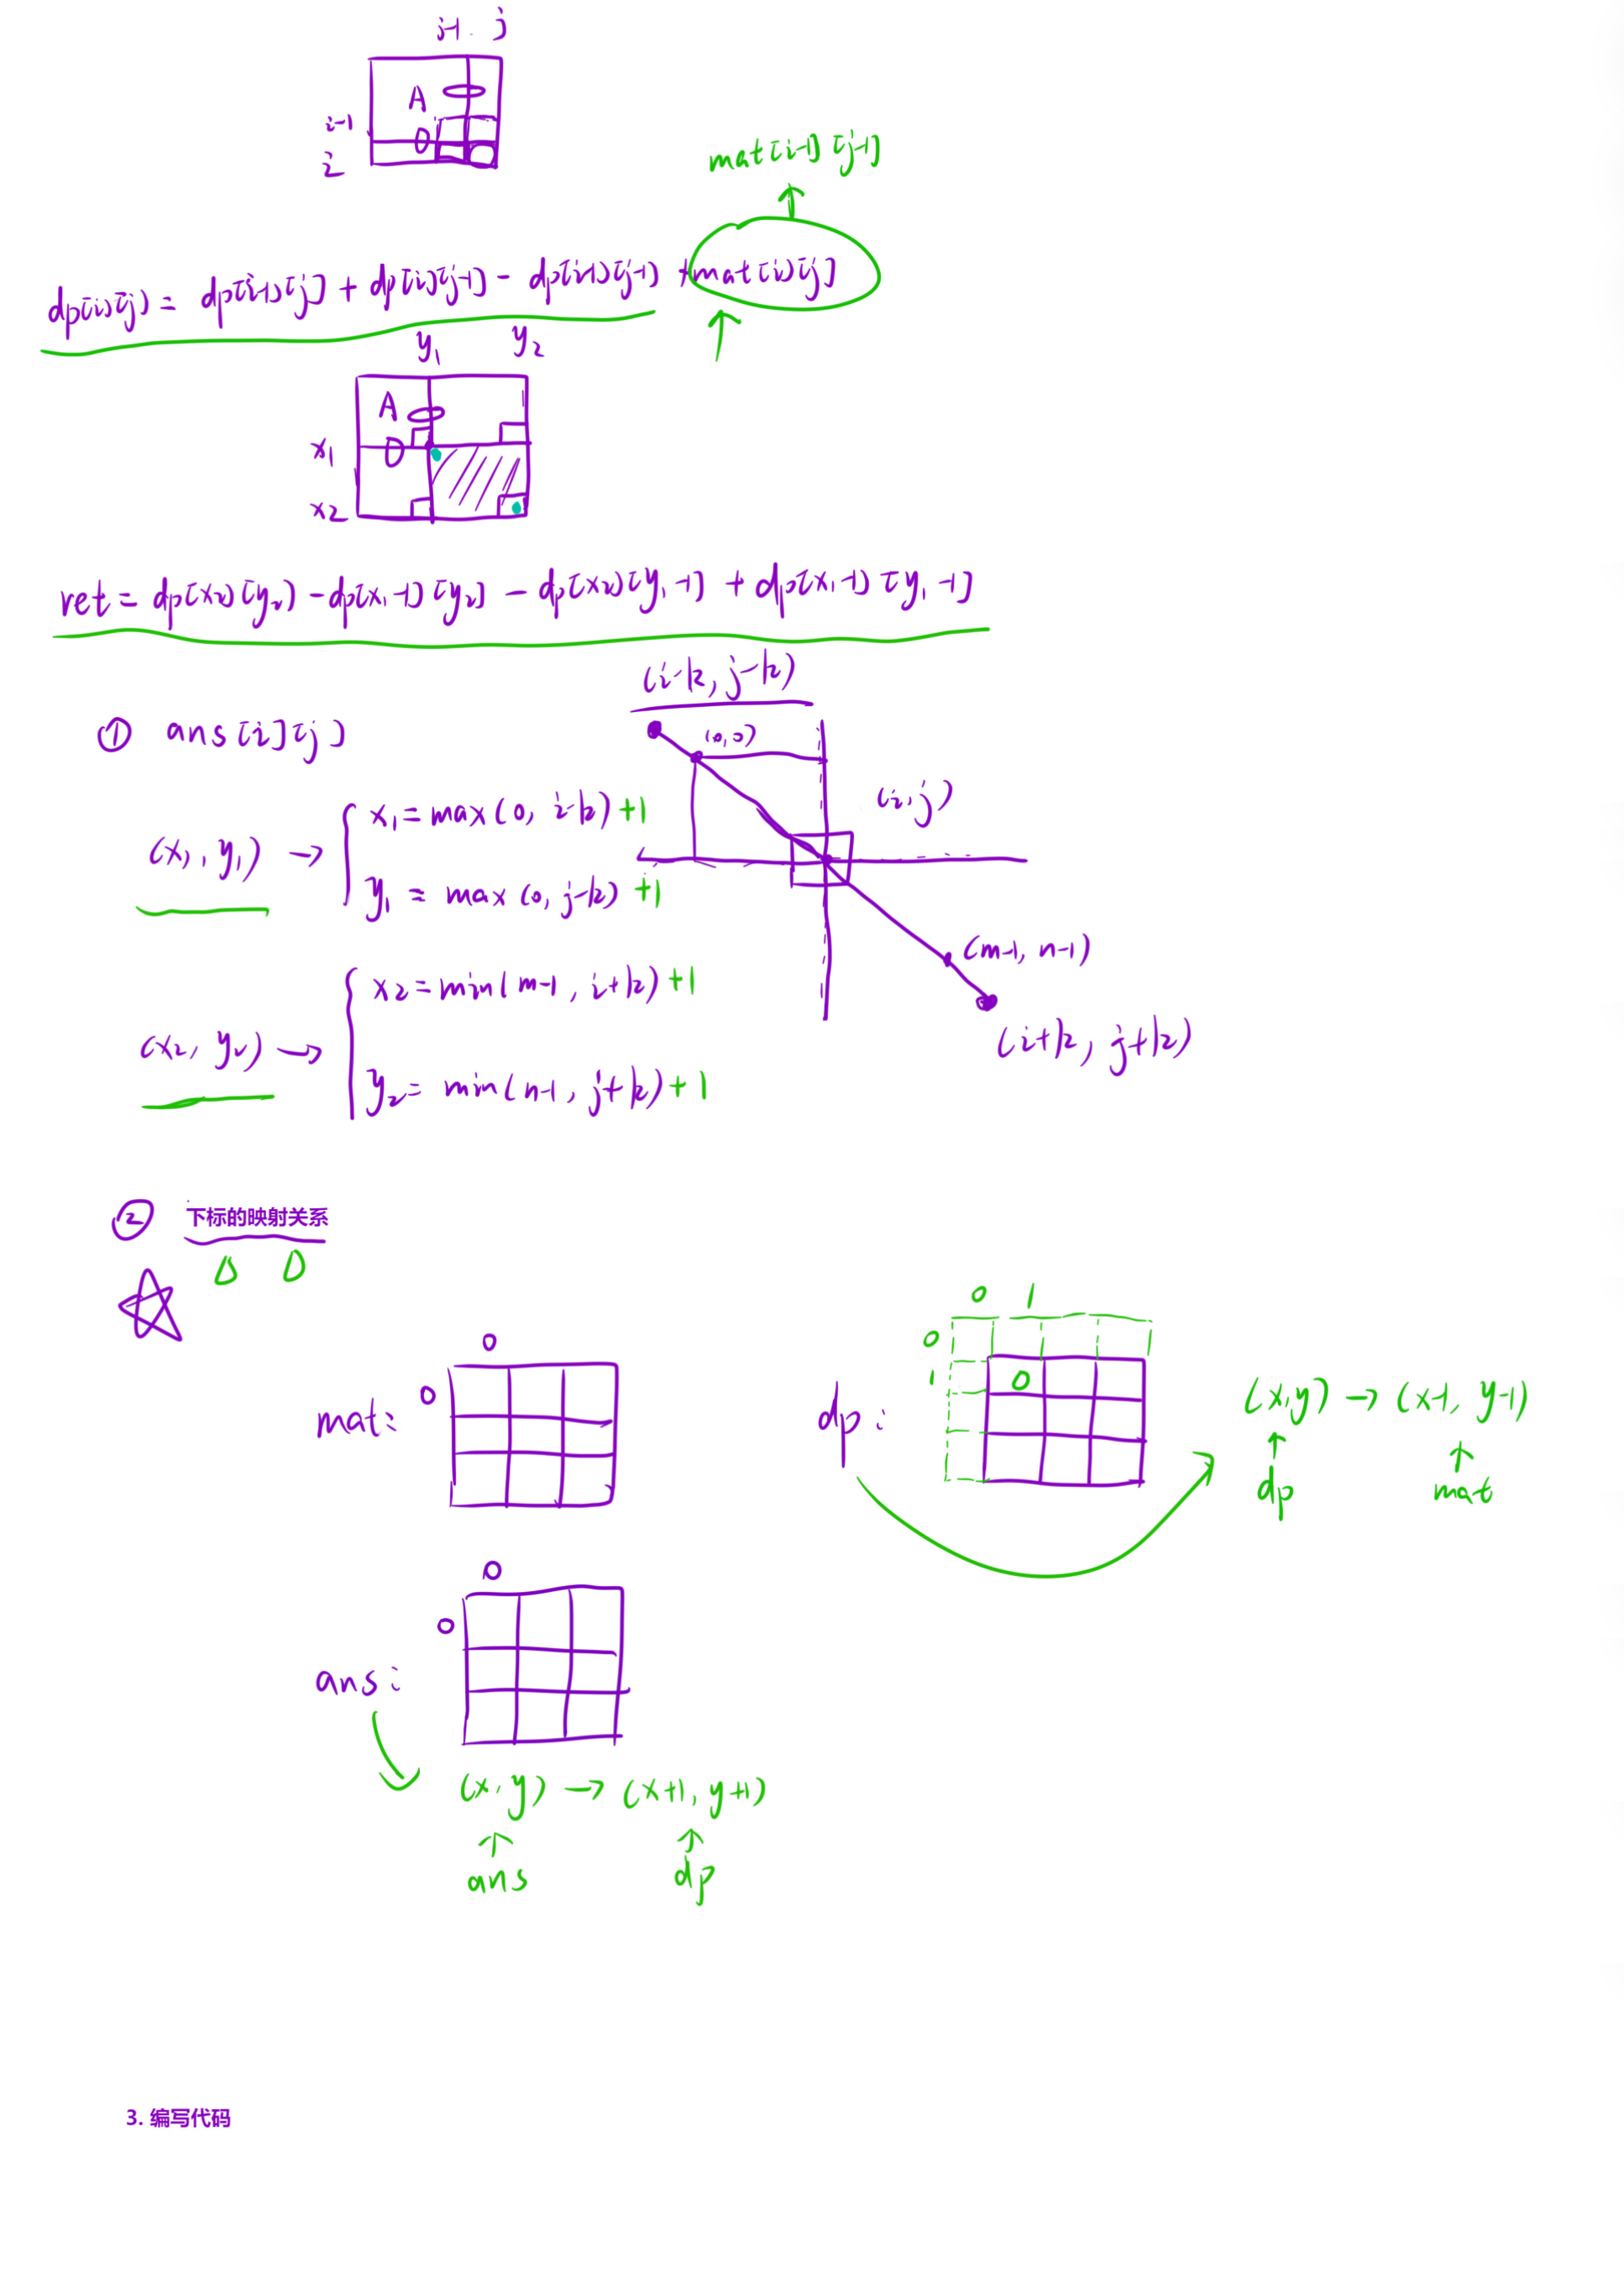 j-1 j
A
i-1
i
mat[i-1][j-1]
dp[i][j] = dp[i-1][j] + dp[i][j-1] - dp[i-1][j-1] + mat[i][j]
y1 y2
A
x1
x2
ret = dp[x2][y2] - dp[x1-1][y2] - dp[x2][y1-1] + dp[x1-1][y1-1]
(i-k, j-k)
① ans[i][j]
(0,0)
(i,j)
(x1, y1) → x1 = max(0, i-k) +1
y1 = max(0, j-k) +1
(m-1, n-1)
(x2, y2) → x2 = min(m-1, i+k) +1
(i+k, j+k)
y2 = min(n-1, j+k) +1
② 下标的映射关系
0 1
0
1
0
0
0
mat:
dp:
(x,y) → (x-1, y-1)
dp mat
0
0
ans:
(x,y) → (x+1, y+1)
ans dp
3. 编写代码